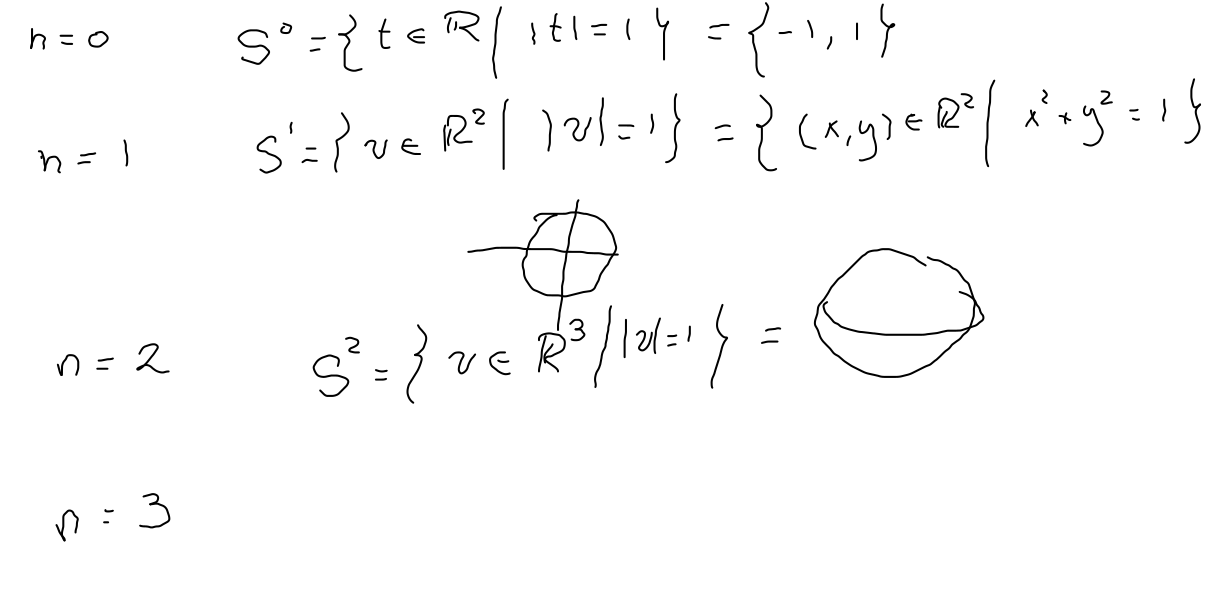 n = 0 S⁰ = { t ∈ ℝ | |t| = 1 } = { -1, 1 }
n = 1 S¹ = { v ∈ ℝ² | |v| = 1 } = { (x, y) ∈ ℝ² | x² + y² = 1 }
n = 2 S² = { v ∈ ℝ³ | |v| = 1 } =
n = 3